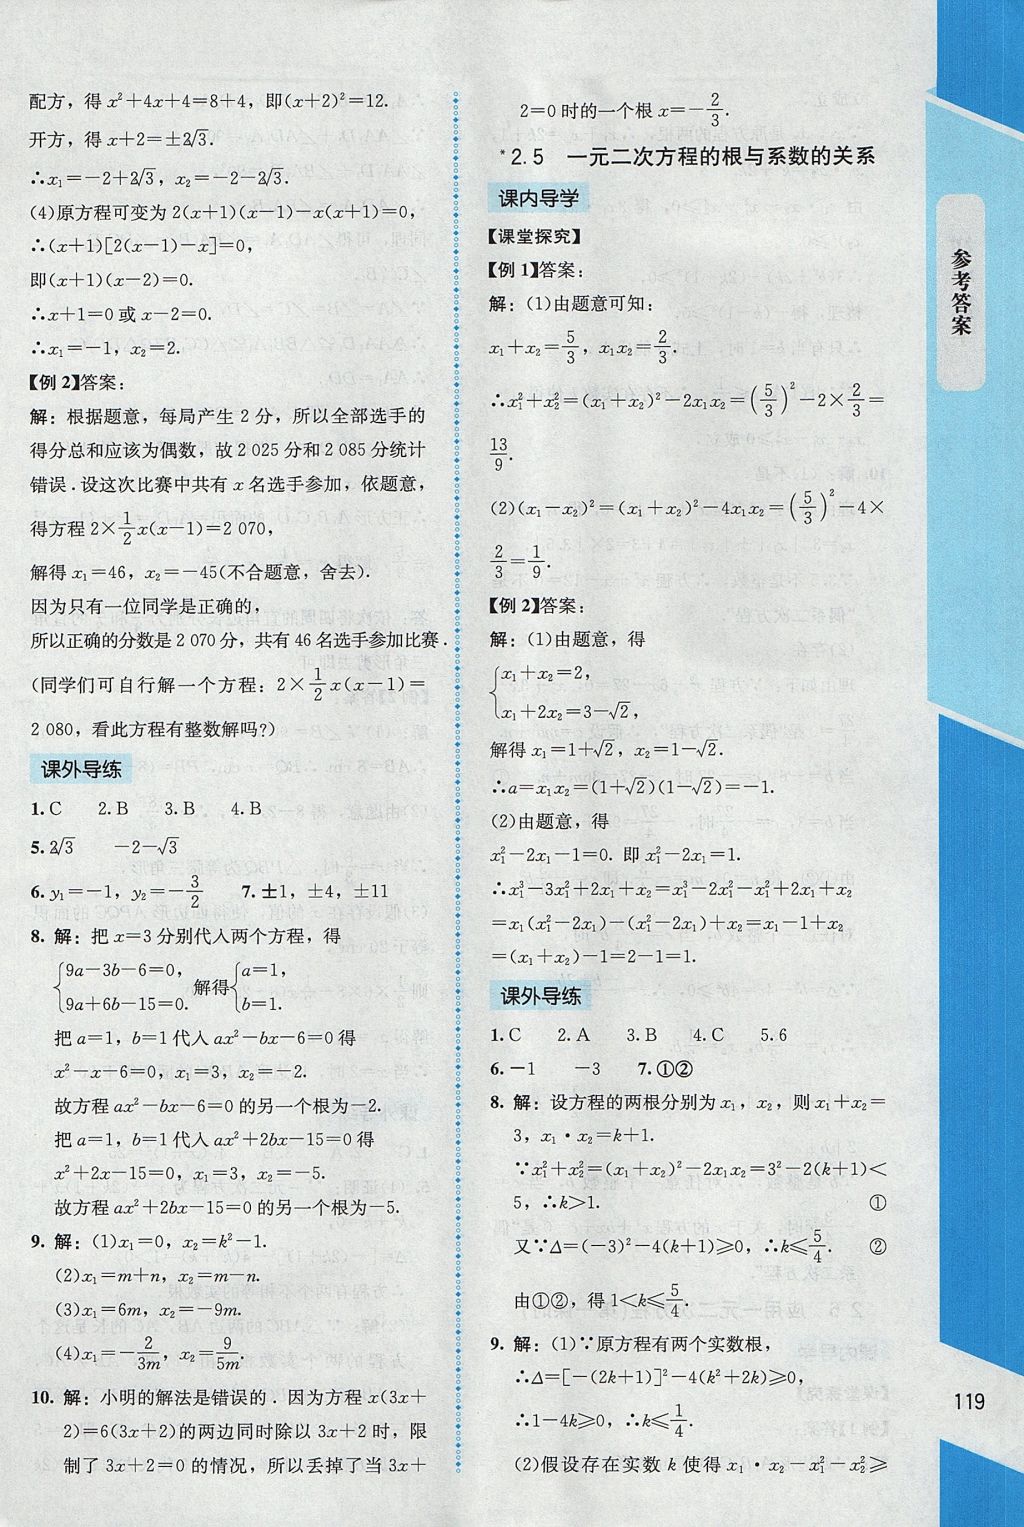 配方，得 x²+4x+4=8+4，即(x+2)²=12.
开方，得 x+2=±2√3.
∴x₁=-2+2√3，x₂=-2-2√3.
(4)原方程可变为 2(x+1)(x-1)-x(x+1)=0，
∴(x+1)[2(x-1)-x]=0，
即(x+1)(x-2)=0.
∴x+1=0 或 x-2=0.
∴x₁=-1，x₂=2.
【例 2】答案：
解：根据题意，每局产生 2 分，所以全部选手的
得分总和应该为偶数，故 2 025 分和 2 085 分统计
错误.设这次比赛中共有 x 名选手参加，依题意，
得方程 2×1/2x(x-1)=2 070，
解得 x₁=46，x₂=-45(不合题意，舍去).
因为只有一位同学是正确的，
所以正确的分数是 2 070 分，共有 46 名选手参加比赛.
(同学们可自行解一个方程：2×1/2x(x-1)=
2 080，看此方程有整数解吗?)
课外导练
1.C 2.B 3.B 4.B
5.2√3 -2-√3
6.y₁=-1，y₂=-3/2 7.±1，±4，±11
8. 解：把 x=3 分别代入两个方程，得
{9a-3b-6=0， 9a+6b-15=0. 解得{a=1， b=1.
把 a=1，b=1 代入 ax²-bx-6=0 得
x²-x-6=0，x₁=3，x₂=-2.
故方程 ax²-bx-6=0 的另一个根为-2.
把 a=1，b=1 代入 ax²+2bx-15=0 得
x²+2x-15=0，x₁=3，x₂=-5.
故方程 ax²+2bx-15=0 的另一个根为-5.
9. 解：(1)x₁=0，x₂=k²-1.
(2)x₁=m+n，x₂=m-n.
(3)x₁=6m，x₂=-9m.
(4)x₁=-2/3m，x₂=9/5m.
10. 解：小明的解法是错误的.因为方程 x(3x+
2)=6(3x+2)的两边同时除以 3x+2 时，限
制了 3x+2=0 的情况，所以丢掉了当 3x+
2=0 时的一个根 x=-2/3.
*2.5 一元二次方程的根与系数的关系
课内导学
【课堂探究】
【例 1】答案：
解：(1)由题意可知：
x₁+x₂=5/3，x₁x₂=2/3.
∴x₁²+x₂²=(x₁+x₂)²-2x₁x₂=(5/3)²-2×2/3=
13/9.
(2)(x₁-x₂)²=(x₁+x₂)²-4x₁x₂=(5/3)²-4×
2/3=1/9.
【例 2】答案：
解：(1)由题意，得
{x₁+x₂=2，
x₁+2x₂=3-√2，
解得 x₁=1+√2，x₂=1-√2.
∴a=x₁x₂=(1+√2)(1-√2)=-1.
(2)由题意，得
x₁²-2x₁-1=0. 即 x₁²-2x₁=1.
∴x₁³-3x₁²+2x₁+x₂=x₁³-2x₁²-x₁²+2x₁+x₂
=x₁(x₁²-2x₁)-(x₁²-2x₁)+x₂=x₁-1+x₂
=(x₁+x₂)-1=2-1=1.
课外导练
1.C 2.A 3.B 4.C 5.6
6.-1 -3 7.①②
8. 解：设方程的两根分别为 x₁，x₂，则 x₁+x₂=
3，x₁·x₂=k+1.
∵x₁²+x₂²=(x₁+x₂)²-2x₁x₂=3²-2(k+1)<
5，∴k>1. ①
又∵Δ=(-3)²-4(k+1)≥0，∴k≤5/4. ②
由①②，得 1<k≤5/4.
9. 解：(1)∵原方程有两个实数根，
∴Δ=[-(2k+1)]²-4(k²+2k)≥0，
∴1-4k≥0，∴k≤1/4.
(2)假设存在实数 k 使得 x₁·x₂-x₁²-x₂²≥
参考答案
119